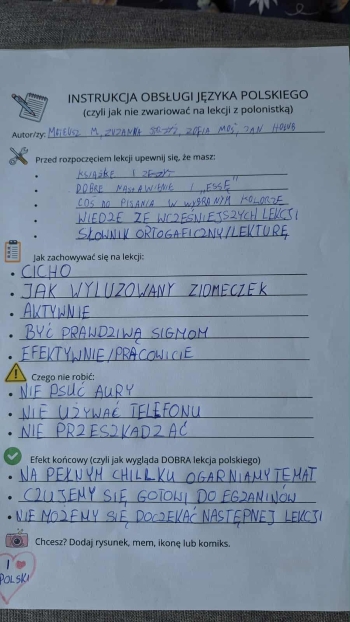 INSTRUKCJA OBSŁUGI JĘZYKA POLSKIEGO
(czyli jak nie zwariować na lekcji z polonistką)
Autor/zy: MATEUSZ M, ZUZANNA ZOFIA MOŚ, JAN HOŁUB
Przed rozpoczęciem lekcji upewnij się, że masz:
KSIĄŻKĘ I ZESZYT
DOBRE NASTAWIENIE I „ESSĘ”
COŚ DO PISANIA W WYBRANYM KOLORZE
WIEDZE ZE WCZEŚNIEJSZYCH LEKCJI
SŁOWNIK ORTOGAFICZNY/LEKTURĘ
Jak zachowywać się na lekcji:
CICHO
JAK WYLUZOWANY ZIOMECZEK
AKTYWNIE
BYĆ PRAWDZIWĄ SIGMOM
EFEKTYWNIE/PRACOWICIE
Czego nie robić:
NIE PSUĆ AURY
NIE UŻYWAĆ TELEFONU
NIE PRZESZKADZAĆ
Efekt końcowy (czyli jak wygląda DOBRA lekcja polskiego)
NA PEŁNYM CHILLKU OGARNIAMY TEMAT
CZUJEMY SIĘ GOTOWI DO EGZAMINÓW
NIE MOŻEMY SIĘ DOCZEKAĆ NASTĘPNEJ LEKCJI
Chcesz? Dodaj rysunek, mem, ikonę lub komiks.
I
POLSKI